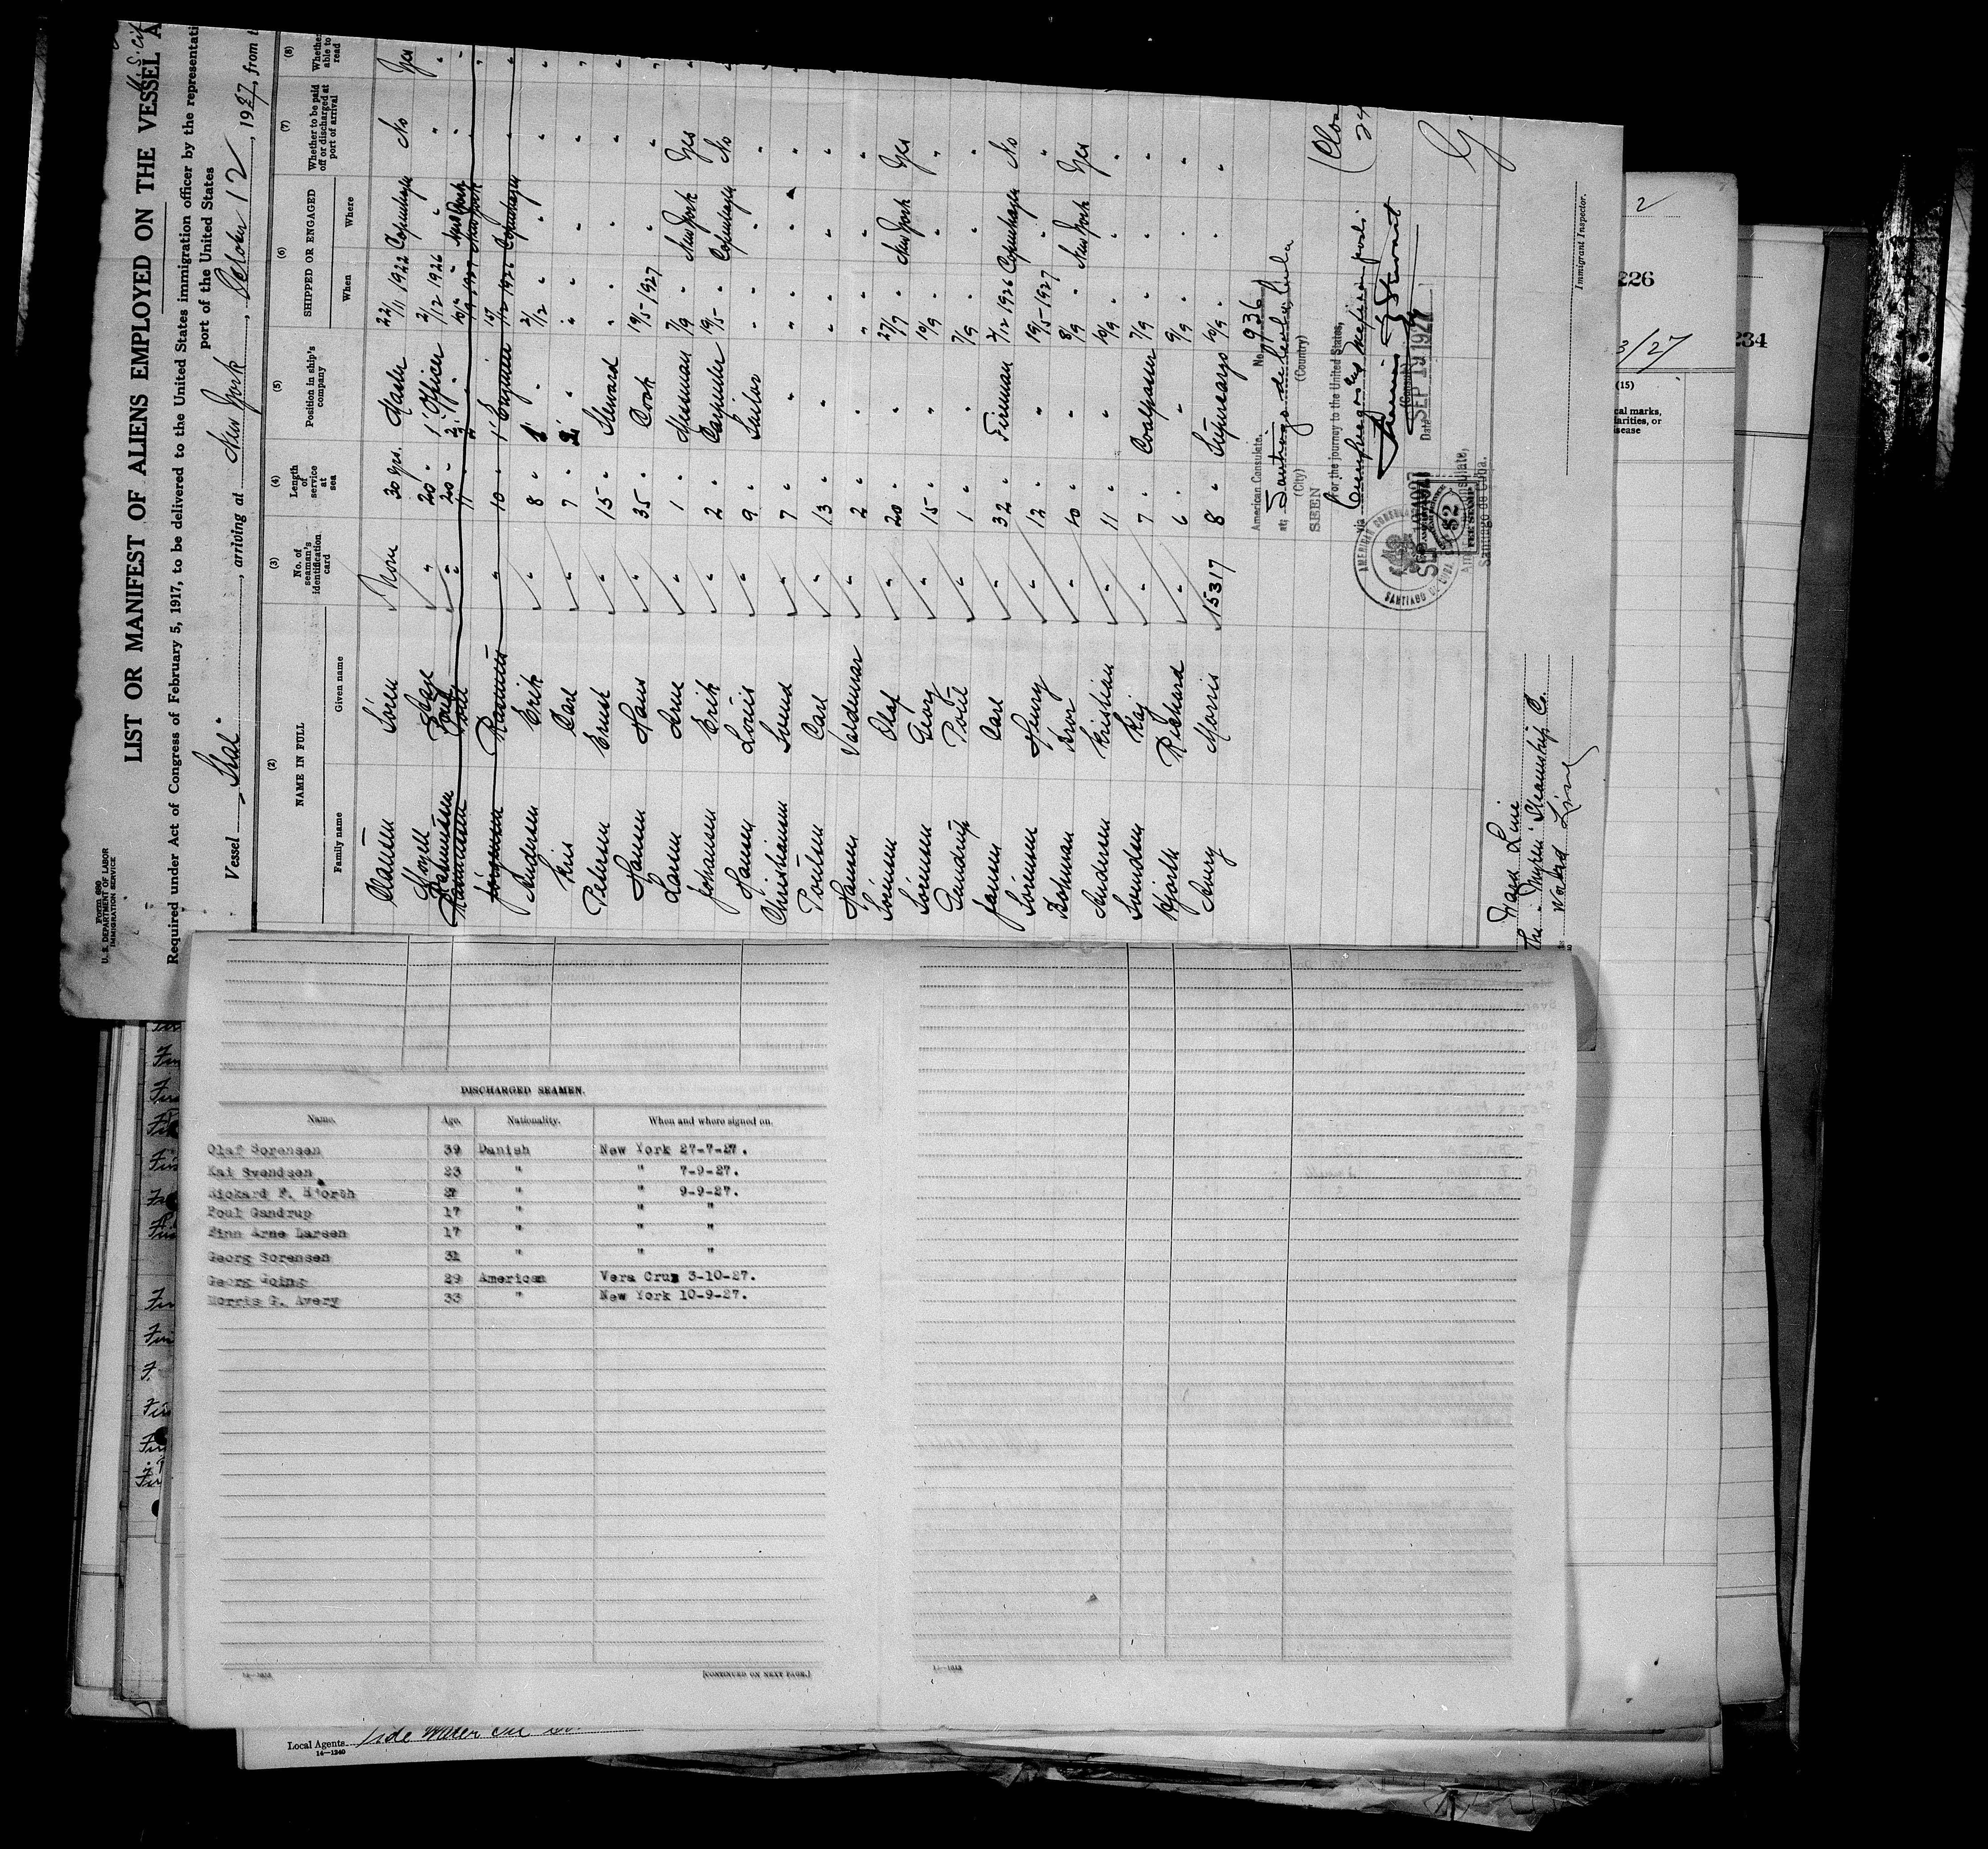 Form 680
U. S. DEPARTMENT OF LABOR
IMMIGRATION SERVICE
U. S. Cit
LIST OR MANIFEST OF ALIENS EMPLOYED ON THE VESSEL A
Required under Act of Congress of February 5, 1917, to be delivered to the United States immigration officer by the representati
port of the United States
Vessel , arriving at New York , October 12 , 1927, from t
(2) (3) (4) (5) (6) (7) (8)
NAME IN FULL No. of seaman's identification card Length of service at sea Position in ship's company SHIPPED OR ENGAGED Whether to be paid off or discharged at port of arrival Whether able to read
Family name Given name When Where
Clausen Sören None 30 yrs. Master 22/11 1922 Copenhagen No Yes
Aage " 20 " 1' Officer 2/12 1926 " " "
Rasmussen Poul " 20 " 2' " New York
11 " 1927 New York
Jörgensen Rasmus " 10 " 1' Engineer 1/12 1926 Copenhagen " "
Andersen Erik " 8 " " 2/12 " " " "
Kris Carl " 7 " 2' " " " " " "
Petersen Ernst " 15 " Steward " " " "
Hansen Hans " 35 " Cook 19/5-1927 " " "
Larsen Arne " 1 " Messman 7/9 " New York Yes "
Johansen Erik " 2 " Carpenter 19/5- " Copenhagen No "
Hansen Louis " 9 " Sailor " " " "
Christiansen Svend " 7 " " " " " "
Poulsen Carl " 13 " " " " " "
Hansen Valdemar " 2 " " " " "
Sörensen Olaf " 20 " " 27/7 " New York Yes
Sörensen Georg " 15 " " 10/9 " " "
Gandrup Poul " 1 " " 7/9 " " "
Jensen Carl " 32 " Fireman 2/12 1926 Copenhagen No
Sörensen Henry " 12 " " 19/5-1927 " "
Bohman Ivor " 10 " " 8/9 " New York Yes
Andersen Kristian " 11 " " 10/9 " " "
Svendsen Kaj " 7 " Coalpasser 7/9 " " "
Hjorth Richard " 6 " " 9/9 " " "
Avery Morris 15317 8 " Supercargo 10/9 " " "
American Consulate. No. 936
at Santiago de Cuba, Cuba
(City) (Country)
SEEN
For the journey to the United States,
via Cienfuegos
Date SEP 19 1927
AMERICAN CONSULATE
SANTIAGO DE CUBA
$2
FEE STAMP
American Consulate,
Santiago de Cuba.
Immigrant Inspector.
Ward Line
The Steamship Co.
Ward Line
2
226
234
3/27
(15)
cal marks,
liarities, or
isease
DISCHARGED SEAMEN.
Name. Age. Nationality. When and where signed on.
Olaf Sorensen 39 Danish New York 27-7-27.
Kai Svendsen 23 " " 7-9-27.
Rickard F. Hjorth 27 " " 9-9-27.
Poul Gandrup 17 " " "
Finn Arne Larsen 17 " " "
Georg Sorensen 31 " " "
Georg Going 29 American Vera Cruz 3-10-27.
Morris G. Avery 33 " New York 10-9-27.
14—1213 [CONTINUED ON NEXT PAGE.]
14—1213
Local Agents Tide Water Oil Co.
14—1240